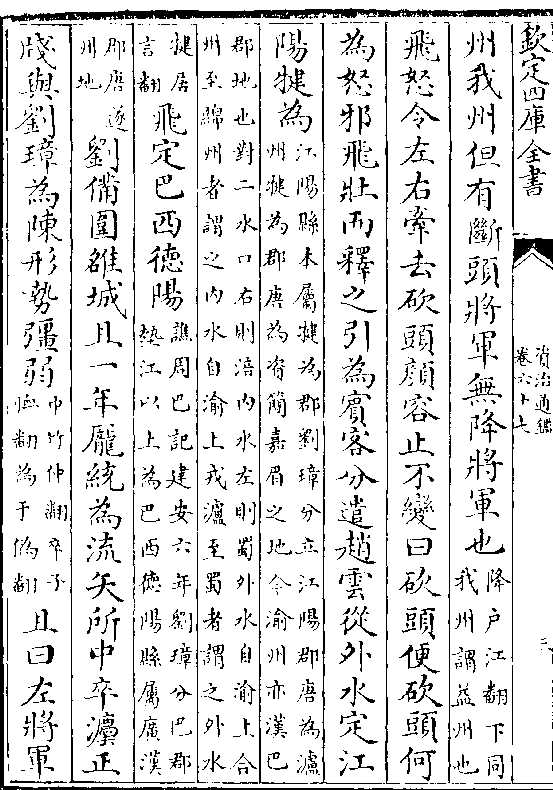 欽定四庫全書
資治通鑑
卷六十七
州我州但有斷頭將軍無降將軍也降户江翻下同我州謂益州也
飛怒令左右牽去砍頭顔容止不變曰砍頭便砍頭何
為怒邪飛壯而釋之引為賓客分遣趙雲從外水定江
陽犍為江陽縣本屬犍為郡劉璋分立江陽郡唐為瀘州犍為郡唐為資簡嘉眉之地今渝州亦漢巴
郡地也對二水口右則涪内水左則蜀外水自渝上合州至綿州者謂之内水自渝上戎瀘至蜀者謂之外水
犍居言翻飛定巴西德陽譙周巴記建安六年劉璋分巴郡墊江以上為巴西德陽縣屬廣漢
郡唐遂州地劉備圍雒城且一年龎統為流矢所中卒灋正
牋與劉璋為陳形勢彊弱中竹仲翻卒子恤翻為于偽翻且曰左將軍